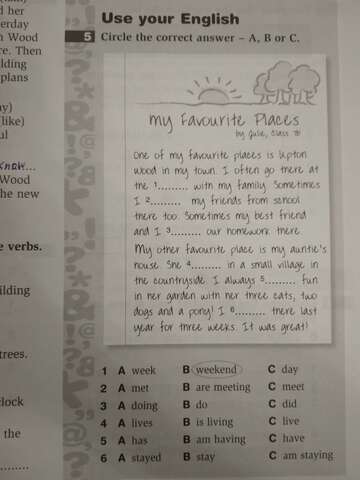 Use your English
5 Circle the correct answer – A, B or C.
my favourite Places
by Julie, Class 7B
One of my favourite places is Upton
Wood in my town. I often go there at
the 1......... with my family. Sometimes
I 2......... my friends from school
there too. Sometimes my best friend
and I 3......... our homework there.
My other favourite place is my auntie's
house. She 4......... in a small village in
the countryside. I always 5......... fun
in her garden with her three cats, two
dogs and a pony! I 6......... there last
year for three weeks. It was great!
1 A week B weekend C day
2 A met B are meeting C meet
3 A doing B do C did
4 A lives B is living C live
5 A has B am having C have
6 A stayed B stay C am staying
d her
erday
n Wood
re. Then
lding
plans
ay)
(like)
ul
know...
Wood
he new
e verbs.
ilding
trees.
clock
the
.........